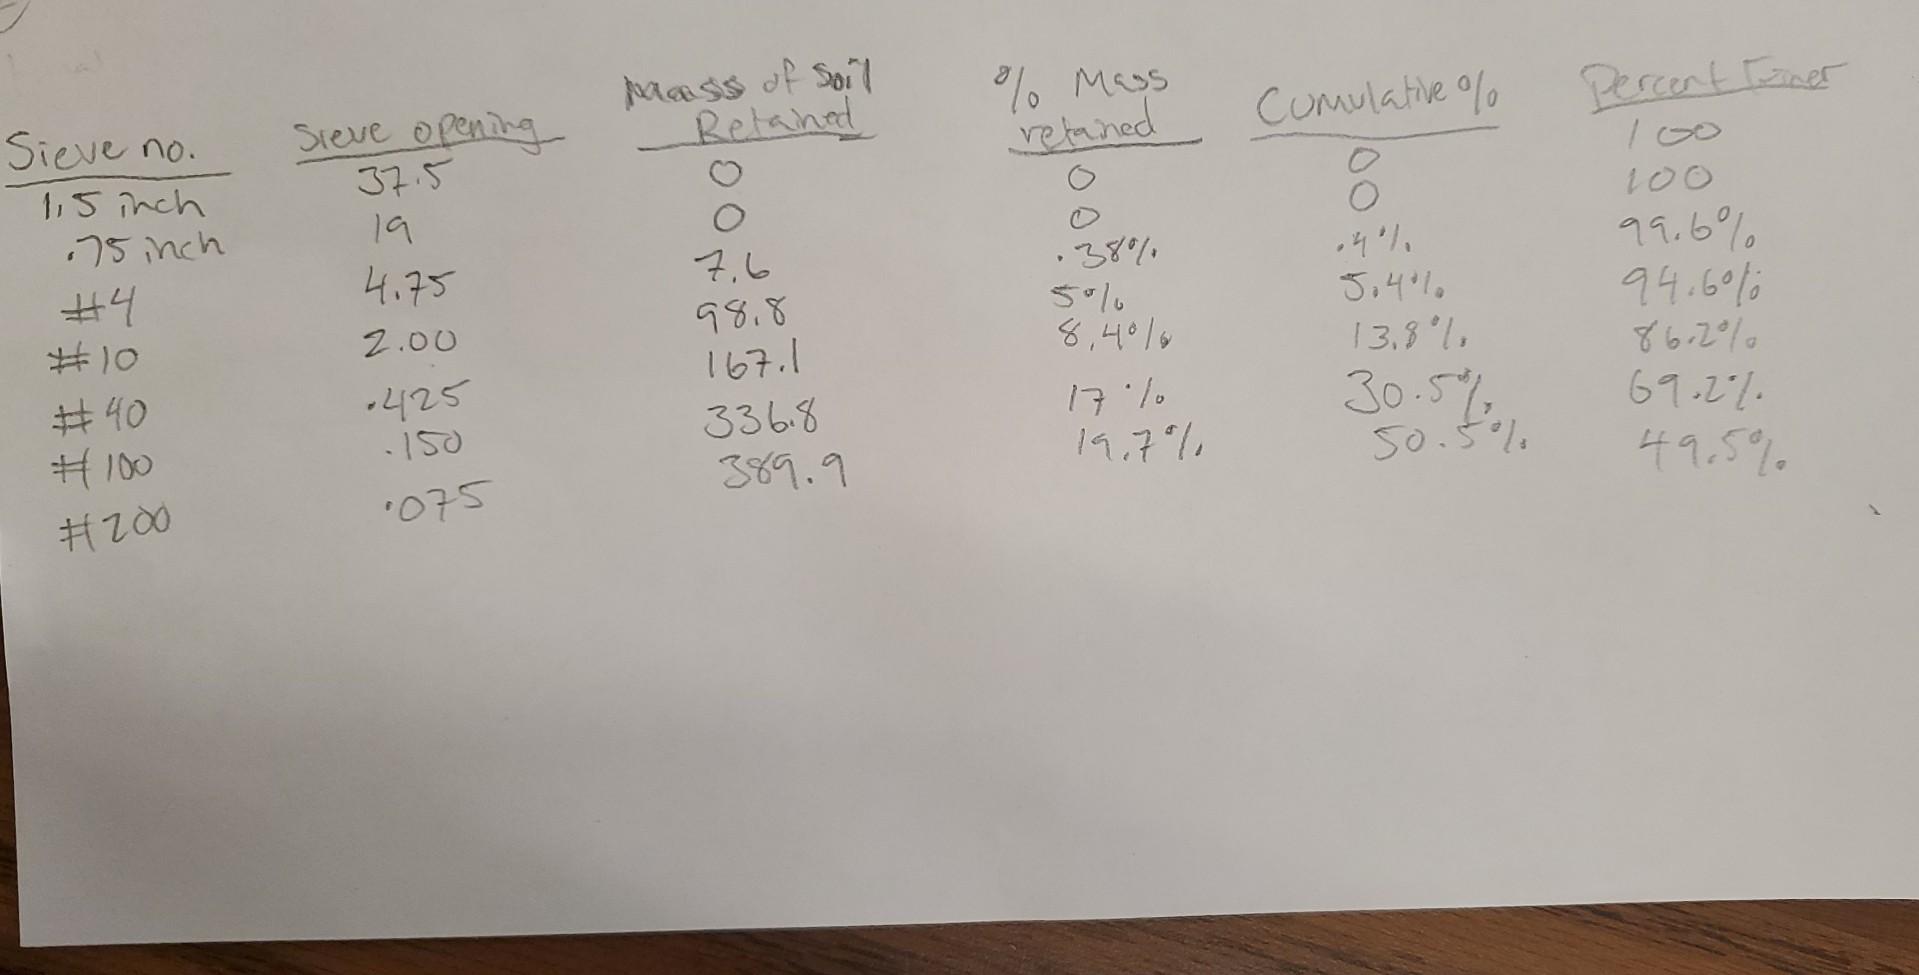 Sieve no. Sieve opening Mass of Soil Retained % Mass retained Cumulative % Percent Finer
1.5 inch 37.5 0 0 0 100
.75 inch 19 0 0 0 100
#4 4.75 7.6 .38% .4% 99.6%
#10 2.00 98.8 5% 5.4% 94.6%
#40 .425 167.1 8.4% 13.8% 86.2%
#100 .150 336.8 17% 30.5% 69.2%
#200 .075 389.9 19.7% 50.5% 49.5%